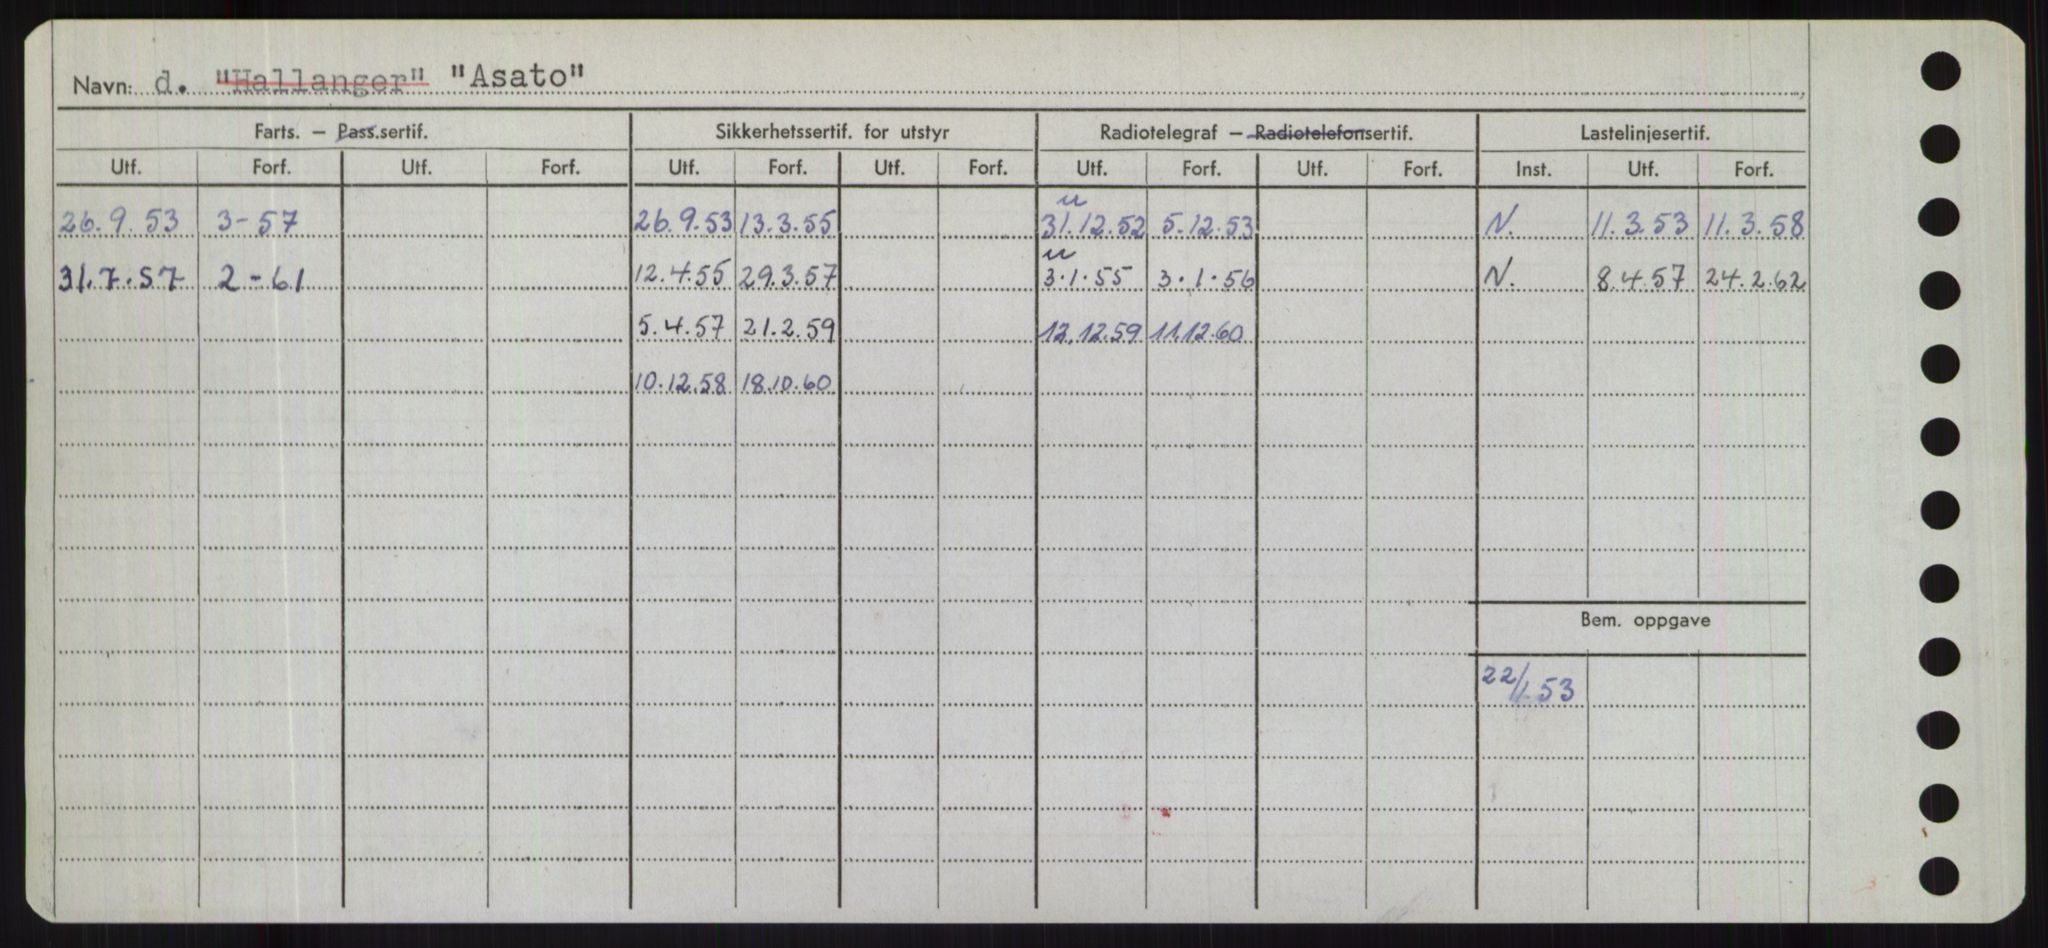 Navn: d. "Hallanger" "Asato"
Farts. – Pass.sertif. Sikkerhetssertif. for utstyr Radiotelegraf – Radiotelefonsertif. Lastelinjesertif.
Utf. Forf. Utf. Forf. Utf. Forf. Utf. Forf. Utf. Forf. Utf. Forf. Inst. Utf. Forf.
u
26.9.53 3-57 26.9.53 13.3.55 31.12.52 5.12.53 N. 11.3.53 11.3.58
u
31.7.57 2-61 12.4.55 29.3.57 3.1.55 3.1.56 N. 8.4.57 24.2.62
5.4.57 21.2.59 12.12.59 11.12.60
10.12.58 18.10.60
Bem. oppgave
22/1.53